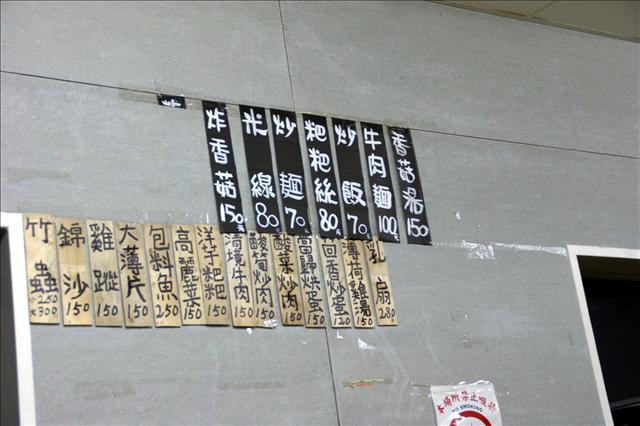 炸香菇 150
米線 80
炒麵 70
粑粑絲 80
炒飯 70
牛肉麵 100元
香菇湯 150
竹蟲 小250 大300
錦沙 150
雞蹤 150
大薄片 150
包料魚 250
高麗菜 150
洋芋粑粑 150
清境牛肉 150
酸筍炒肉 150
酸菜炒肉 150
當歸烘蛋 150
茴香炒蛋 120
薄荷雞湯 150
乳扇 280
本場所禁止吸菸
NO SMOKING